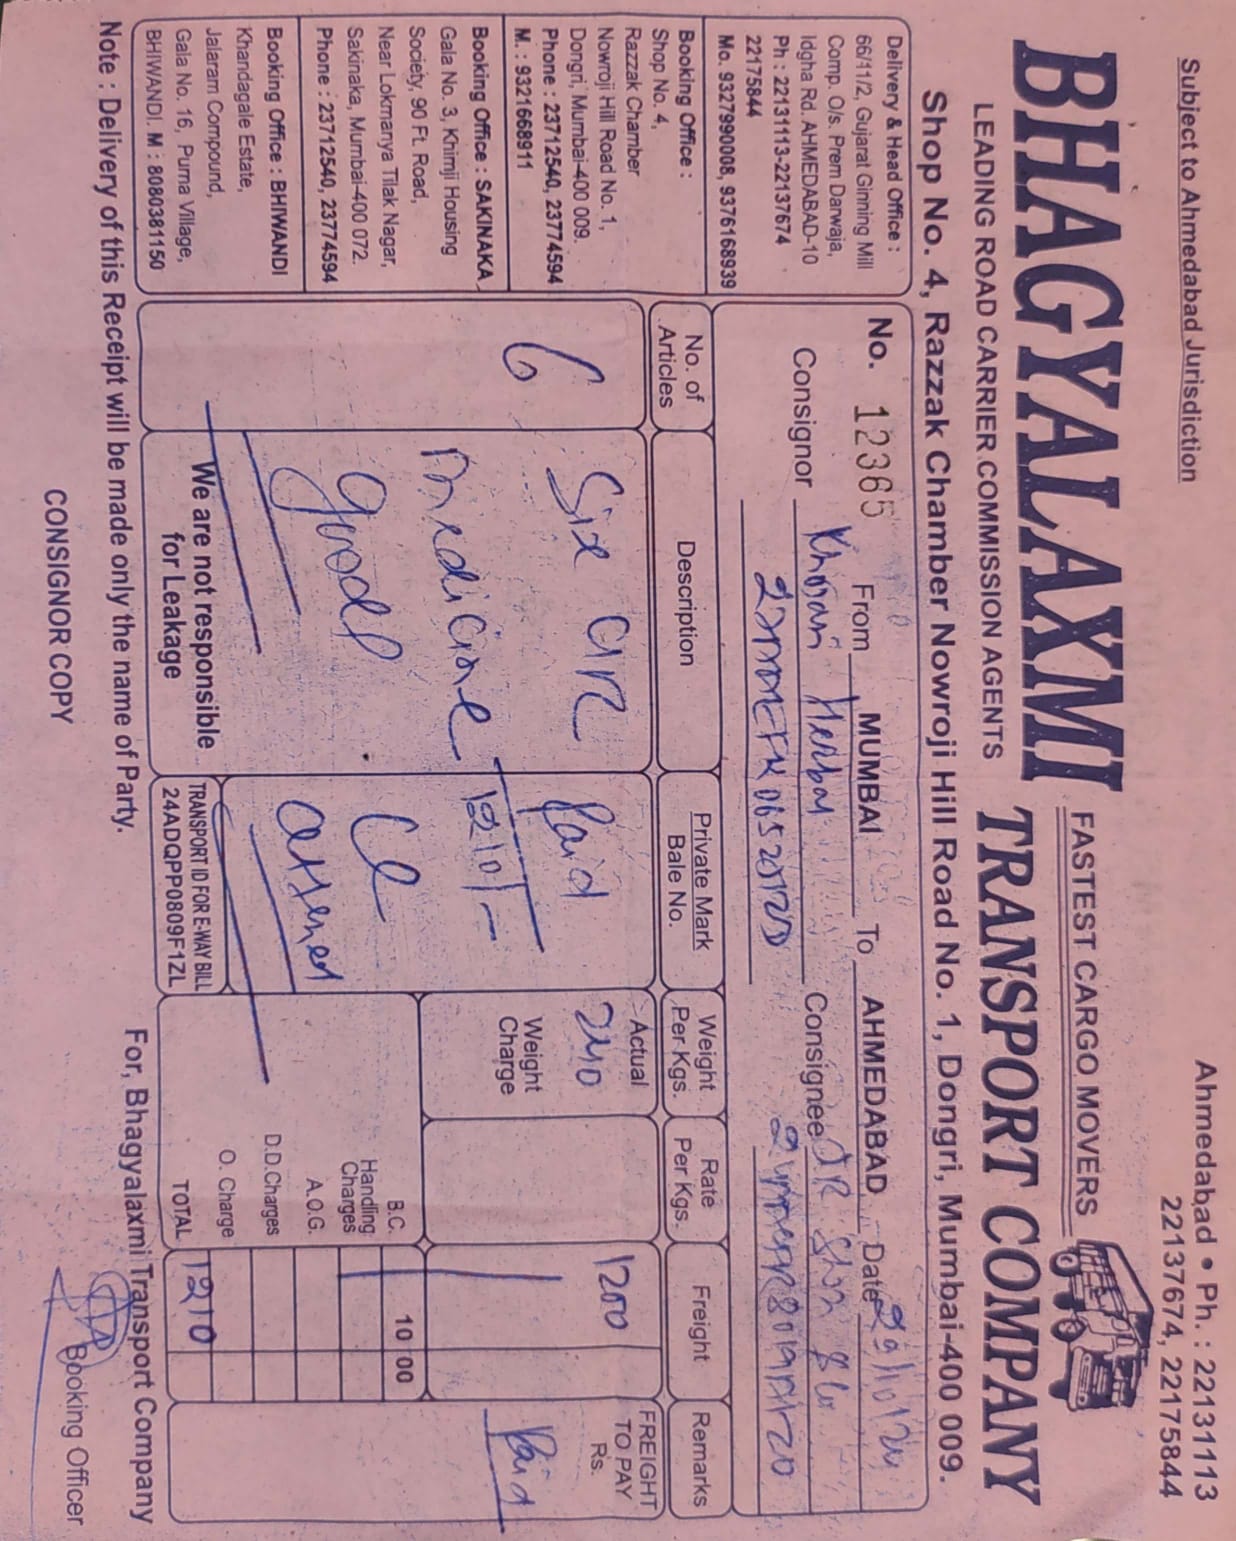 Subject to Ahmedabad Jurisdiction
Ahmedabad • Ph. : 22131113
22137674, 22175844
FASTEST CARGO MOVERS
BHAGYALAXMI TRANSPORT COMPANY
LEADING ROAD CARRIER COMMISSION AGENTS
Shop No. 4, Razzak Chamber Nowroji Hill Road No. 1, Dongri, Mumbai-400 009.
Delivery & Head Office :
66/11/2, Gujarat Ginning Mill
Comp. O/s. Prem Darwaja,
Idgha Rd. AHMEDABAD-10
Ph : 22131113-22137674
22175844
Mo. 9327990008, 9376168939
Booking Office :
Shop No. 4,
Razzak Chamber
Nowroji Hill Road No. 1,
Dongri, Mumbai-400 009.
Phone : 23712540, 23774594
M. : 9321668911
Booking Office : SAKINAKA
Gala No. 3, Khimji Housing
Society, 90 Ft. Road,
Near Lokmanya Tilak Nagar,
Sakinaka, Mumbai-400 072.
Phone : 23712540, 23774594
Booking Office : BHIWANDI
Khandagale Estate,
Jalaram Compound,
Gala No. 16, Purna Village,
BHIWANDI. M : 8080381150
No. 12365 From MUMBAI To AHMEDABAD Date 29/10/24
Consignor Herbal Consignee
No. of Articles
Description
Private Mark
Bale No.
Weight Per Kgs.
Rate Per Kgs.
Freight
Remarks
6
Six
medicine
good
Paid
1210/-
Actual
240
Weight Charge
1200
FREIGHT TO PAY Rs.
Paid
B.C. 10 00
Handling Charges
A.O.G.
D.D.Charges
O. Charge
TOTAL 1210
We are not responsible for Leakage
TRANSPORT ID FOR E-WAY BILL
24ADQPP0809F1ZL
Note : Delivery of this Receipt will be made only the name of Party.
For, Bhagyalaxmi Transport Company
CONSIGNOR COPY
Booking Officer